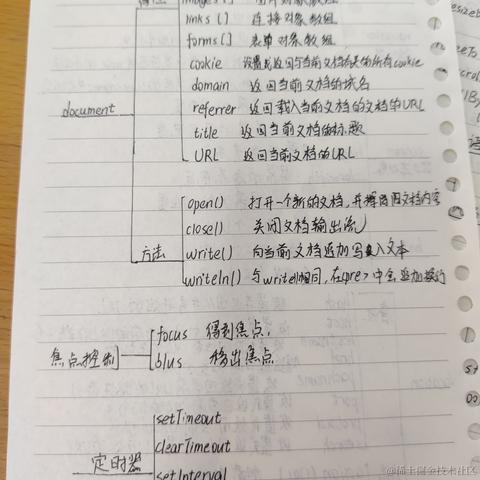 images[]
links[] 连接对象数组
forms[] 表单对象数组
cookie 设置或返回与当前文档有关的所有cookie
domain 返回当前文档的域名
document
referrer 返回载入当前文档的文档的URL
title 返回当前文档的标题
URL 返回当前文档的URL
open() 打开一个新的文档,并擦除旧文档内容
close() 关闭文档输出流
write() 向当前文档追加写入文本
方法
writeln() 与write()相同,在<pre>中会追加换行
focus 得到焦点,
焦点控制
blus 移出焦点
setTimeout
clearTimeout
定时器
setInterval
@稀土掘金技术社区